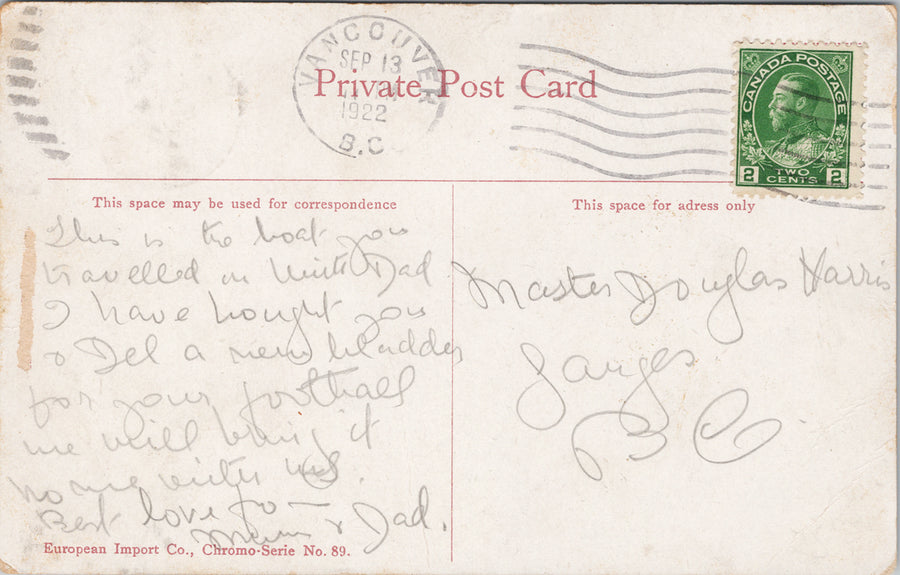 VANCOUVER
SEP 13
1922
B.C.
Private Post Card
CANADA POSTAGE
2 TWO CENTS 2
This space may be used for correspondence
This is the boat you
travelled on with Dad
I have bought you
& Del a new bladder
for your football
we will bring it
home with us.
Best love fo
Mum & Dad.
European Import Co., Chromo-Serie No. 89.
This space for adress only
Master Douglas Harris
Ganges
B C.